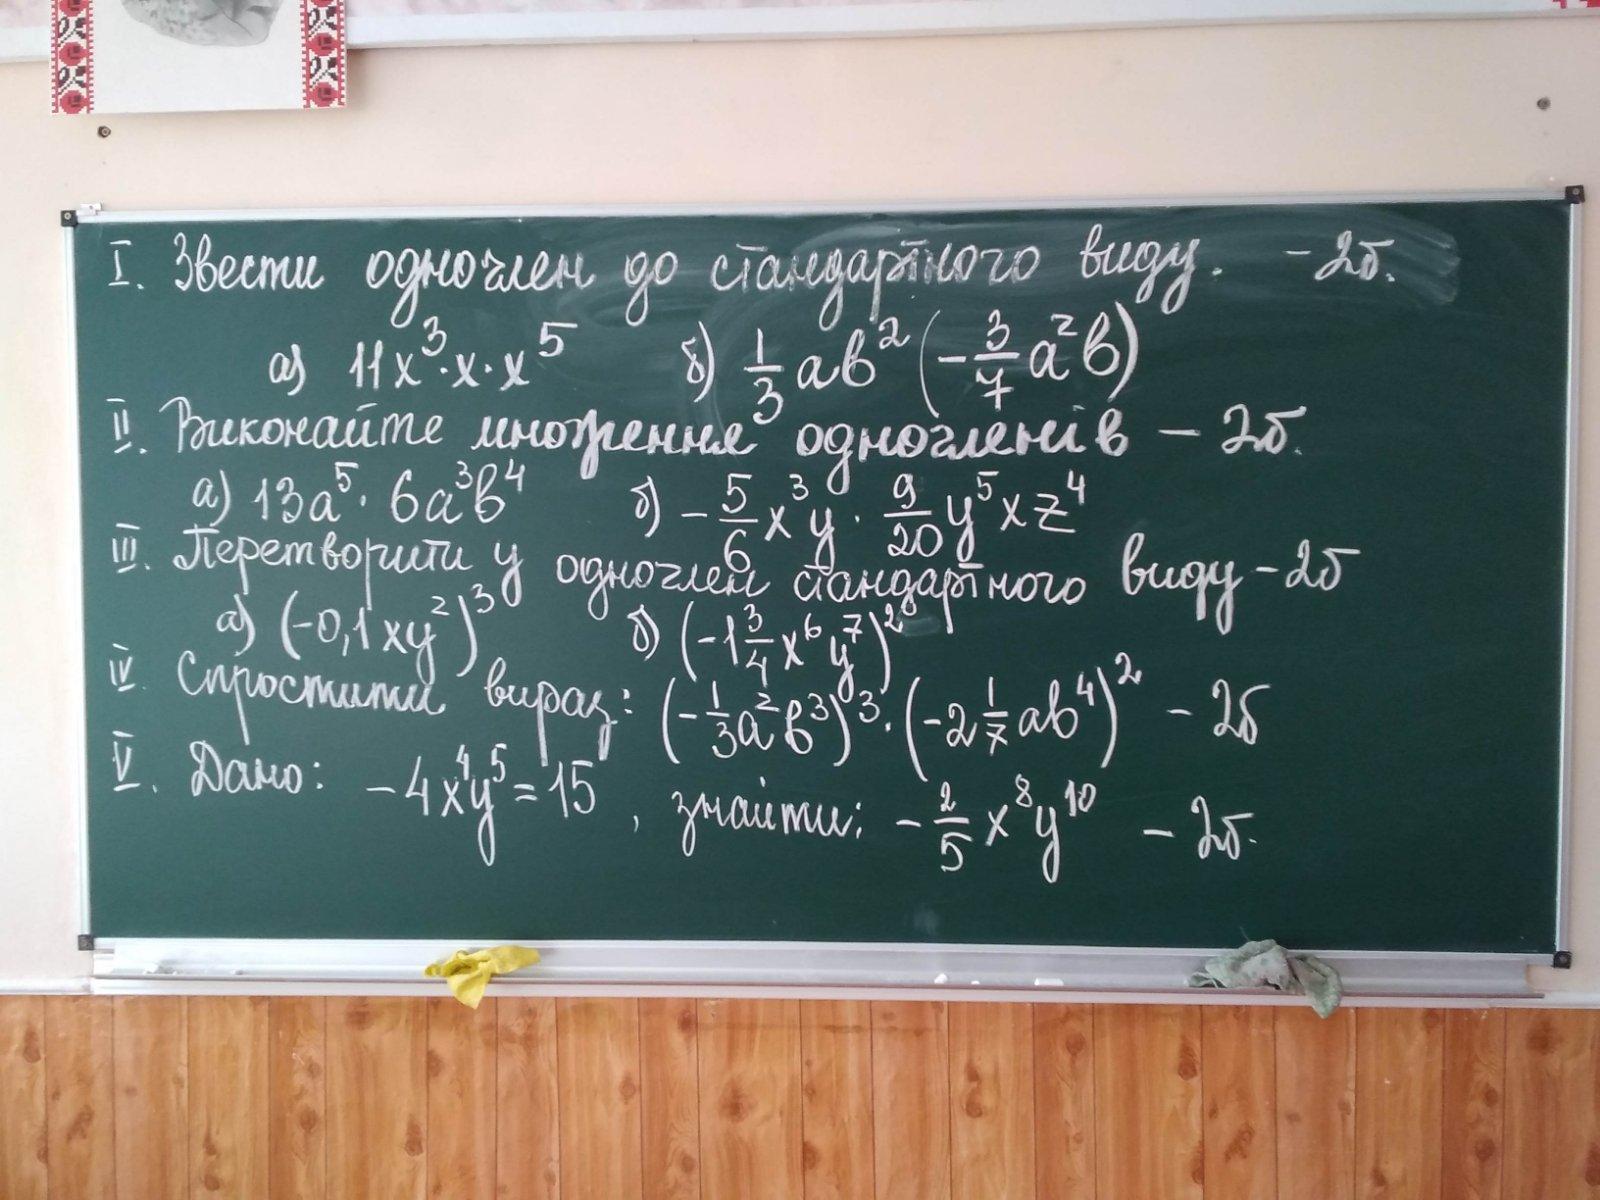 I. Звести одночлен до стандартного виду. - 2б.
а) 11x³·x·x⁵ б) 1/3 ab² (-3/7 a²b)
II. Виконайте множення одночленів - 2б.
а) 13a⁵·6a³b⁴ б) -5/6 x³y · 9/20 y⁵xz⁴
III. Перетворити у одночлен стандартного виду - 2б
а) (-0,1xy²)³ б) (-1 3/4 x⁶y⁷)²
IV. Спростити вираз: (-1/3 a²b³)³·(-2 1/7 ab⁴)² - 2б
V. Дано: -4x⁴y⁵ = 15, знайти: -2/5 x⁸y¹⁰ - 2б.